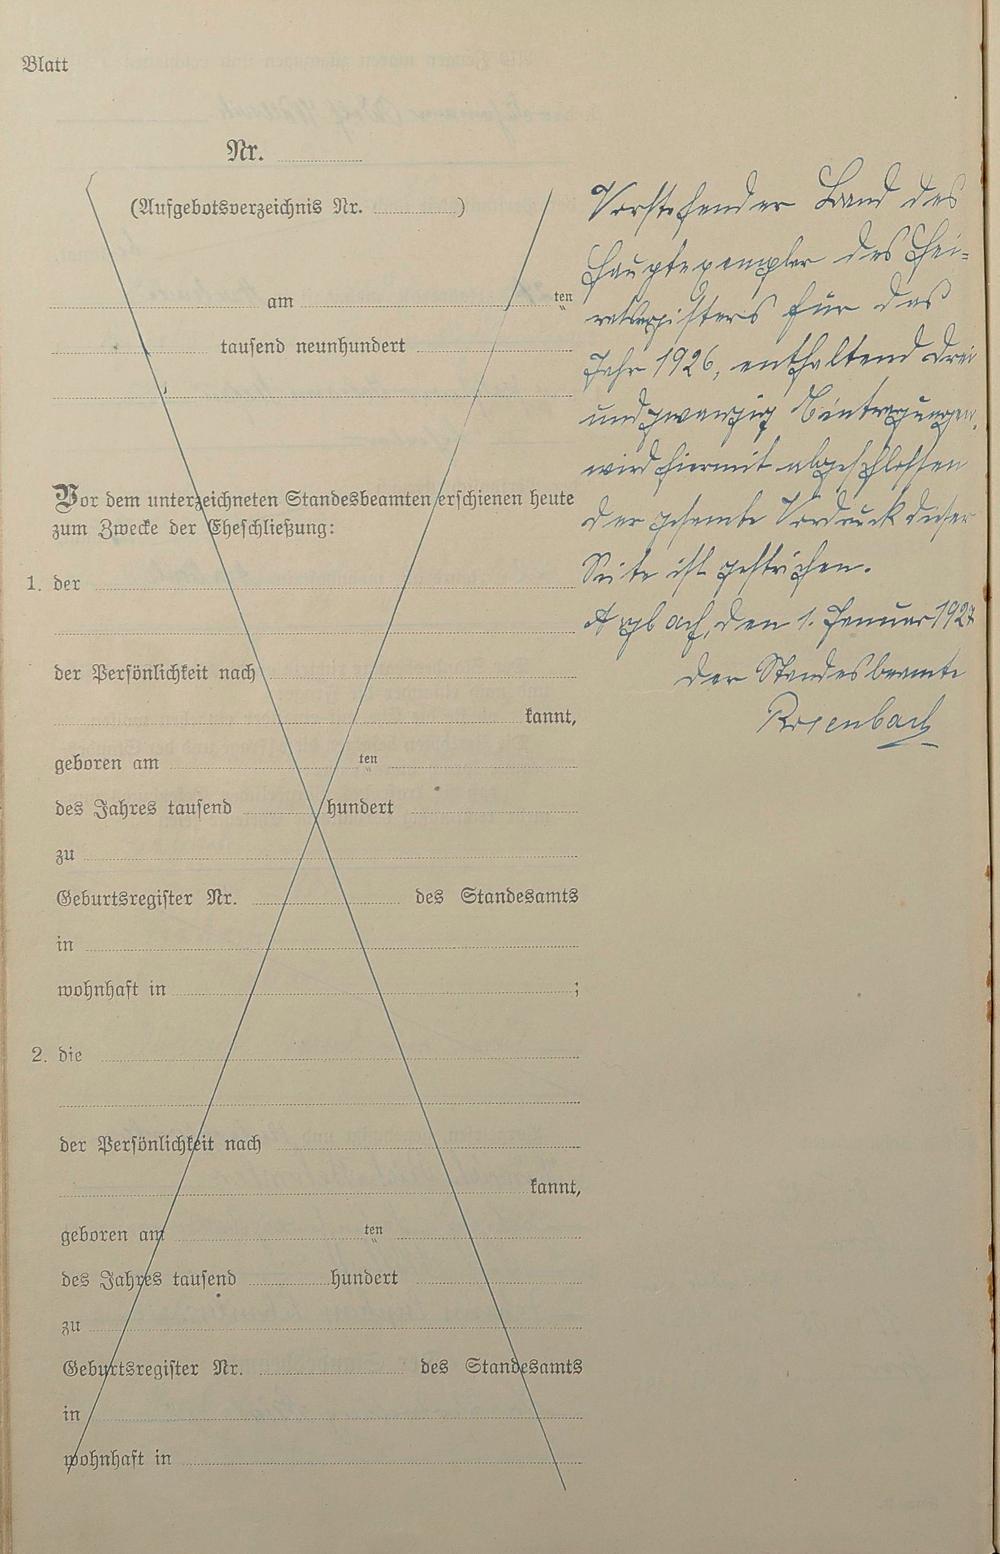 Blatt
Nr.
(Aufgebotsverzeichnis Nr. )
am ten
tausend neunhundert
Vor dem unterzeichneten Standesbeamten erschienen heute
zum Zwecke der Eheschließung:
1. der
der Persönlichkeit nach
kannt,
geboren am ten
des Jahres tausend hundert
zu
Geburtsregister Nr. des Standesamts
in
wohnhaft in ;
2. die
der Persönlichkeit nach
kannt,
geboren am ten
des Jahres tausend hundert
zu
Geburtsregister Nr. des Standesamts
in
wohnhaft in
Vorstehender Band des
Hauptexemplar des Hei-
ratsregisters für das
Jahr 1926, enthaltend drei
und zwanzig Eintragungen,
wird hiermit abgeschlossen
der gesamte Vordruck dieser
Seite ist gestrichen.
den 1. Januar 1927
Der Standesbeamte
Rosenbach